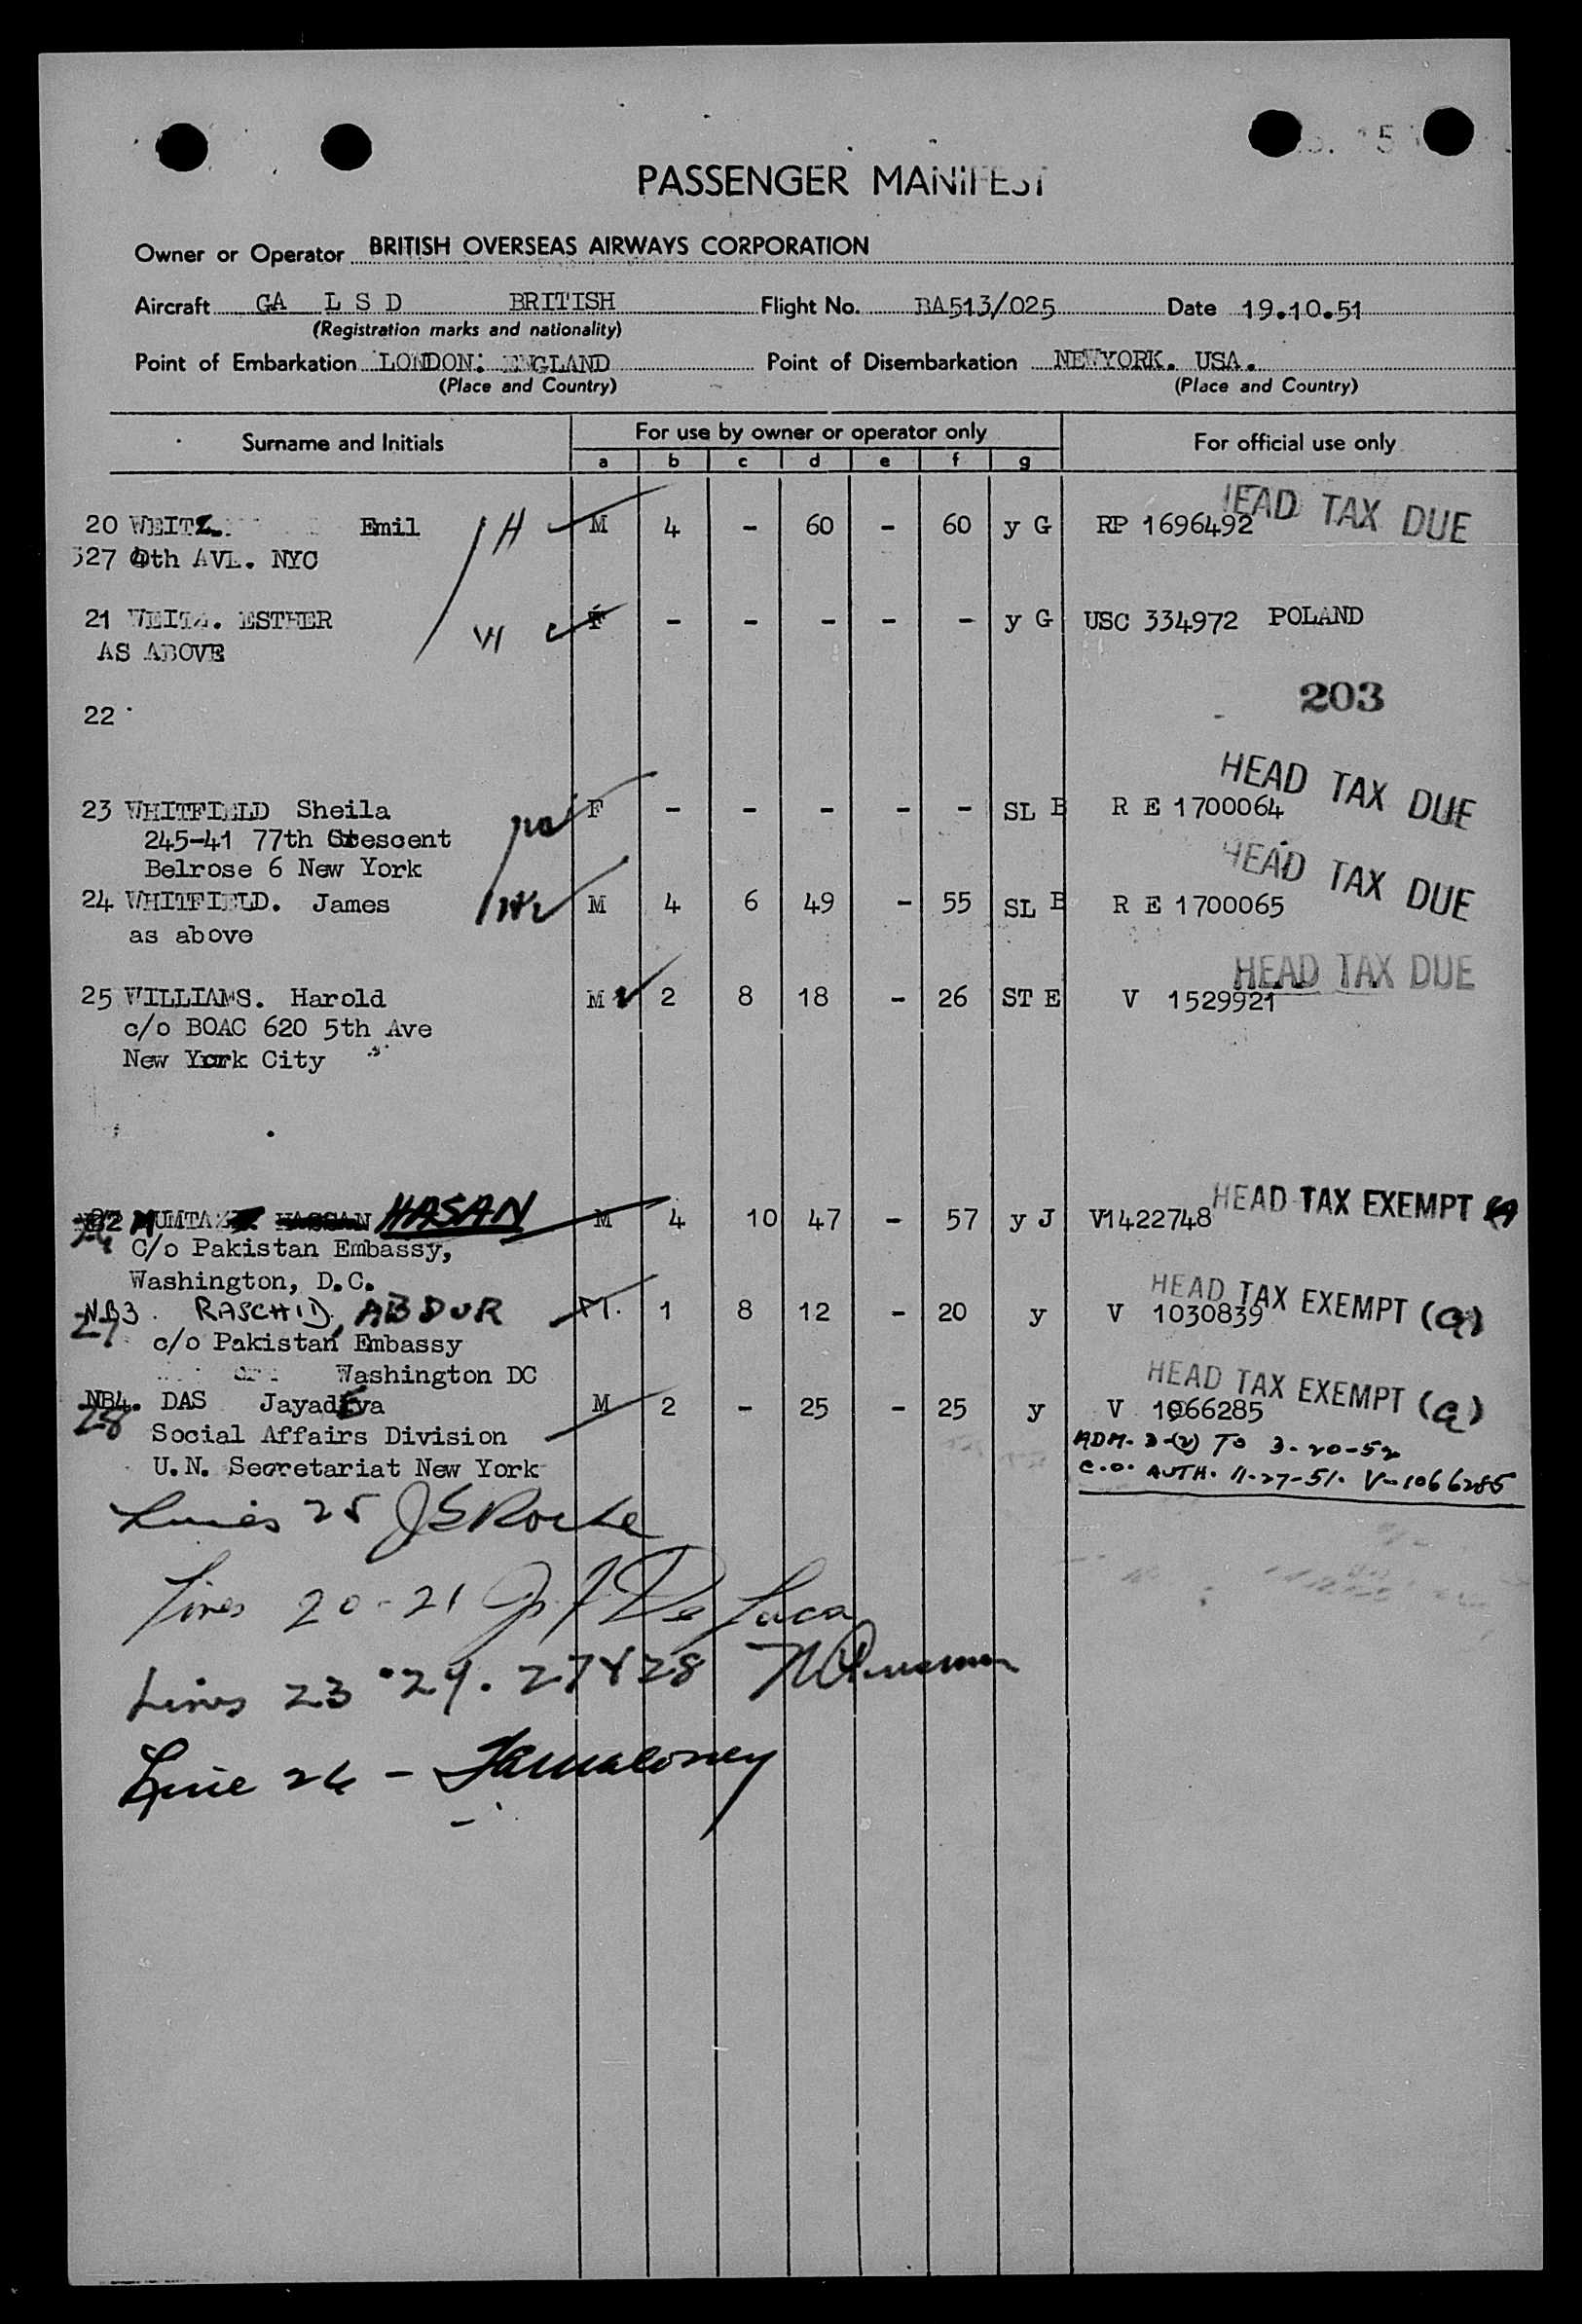 PASSENGER MANIFEST
Owner or Operator BRITISH OVERSEAS AIRWAYS CORPORATION
Aircraft GA L S D BRITISH Flight No. BA513/025 Date 19.10.51
(Registration marks and nationality)
Point of Embarkation LONDON: ENGLAND Point of Disembarkation NEWYORK. USA.
(Place and Country) (Place and Country)
Surname and Initials For use by owner or operator only For official use only
a b c d e f g
HEAD TAX DUE
20 WEITZ. Emil H M 4 - 60 - 60 y G RP 1696492
527 4th AVE. NYC
21 WEITZ. ESTHER F - - - - - y G USC 334972 POLAND
AS ABOVE
203
22
HEAD TAX DUE
23 WHITFIELD Sheila F - - - - - SL B R E 1700064
245-41 77th Crescent
Belrose 6 New York
HEAD TAX DUE
24 WHITFIELD. James M 4 6 49 - 55 SL B R E 1700065
as above
HEAD TAX DUE
25 WILLIAMS. Harold M 2 8 18 - 26 ST E V 1529921
c/o BOAC 620 5th Ave
New York City
HEAD TAX EXEMPT
MUMTAZ HASSAN HASAN M 4 10 47 - 57 y J V1422748
26 C/o Pakistan Embassy,
Washington, D.C.
HEAD TAX EXEMPT (a)
NB3. RASCHID, ABDUR M. 1 8 12 - 20 y V 1030839
27 c/o Pakistan Embassy
Washington DC
HEAD TAX EXEMPT (a)
NB4. DAS JayadEva M 2 - 25 - 25 y V 1066285
28 Social Affairs Division ADM. 3-(2) TO 3-20-52
U.N. Secretariat New York C.O. AUTH. 11-27-51. V-1066285
Lines 25 J E Roche
Lines 20-21 De Luca
Lines 23 24. 27 & 28
Line 26 - Maloney